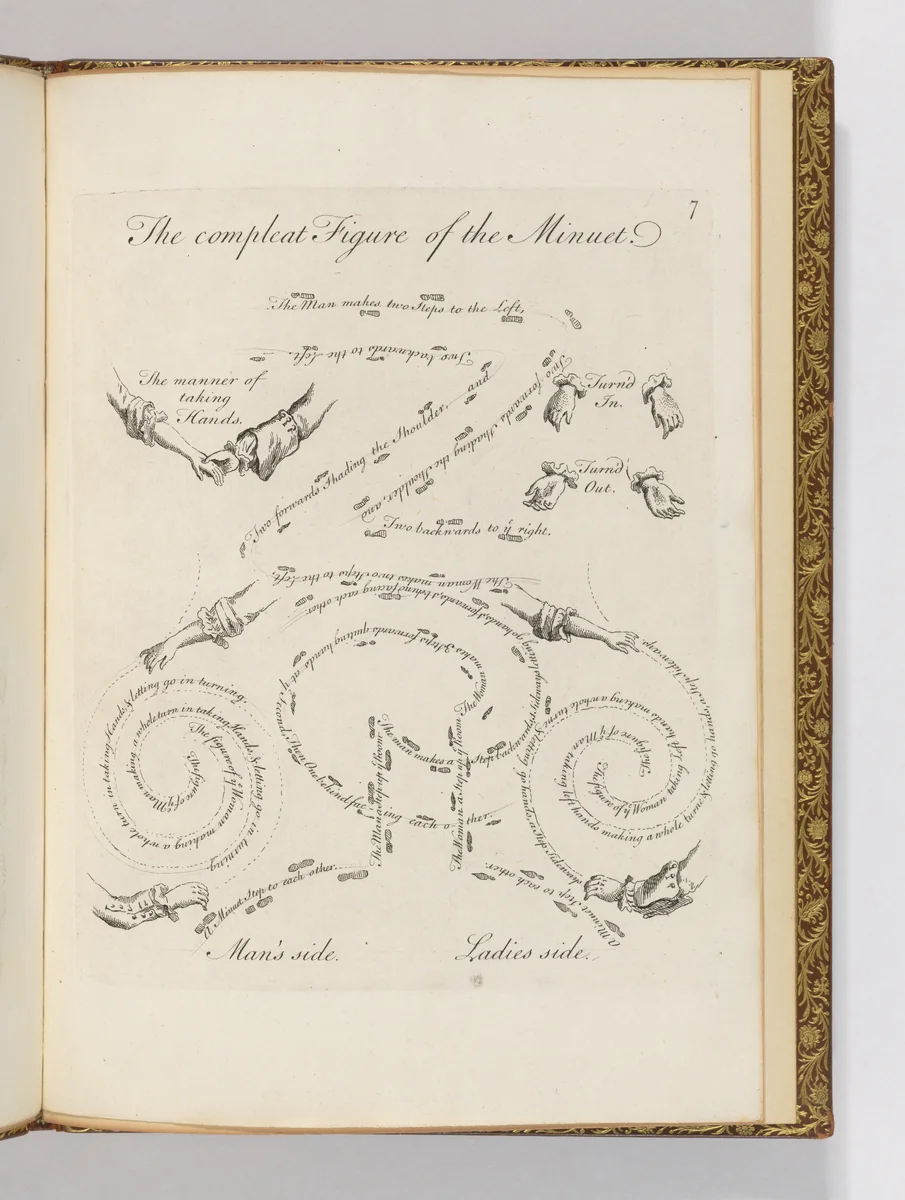 7
The compleat Figure of the Minuet.
The Man makes two Steps to the Left,
Two backwards to the Left.
The manner of
taking
Hands.
Turn'd
In.
Turn'd
Out.
Two forwards Shading the Shoulder, and
Two forwards Shading the Shoulder, and
Two backwards to yͤ right.
The Woman makes two Steps to the Left
forwards & behind facing each other.
The Woman makes 3 Steps forwards quiting hands at yͤ Second, Then One behind facing each other.
The man makes a Step backwards
The Man a Step up yͤ Room
The Woman a Step up yͤ Room
The figure of yͤ Man making a whole turn in taking Hands & letting go in turning
The figure of yͤ Woman making a whole turn in taking Hands & letting go in turning.
The figure of yͤ Man taking left hands making a whole turn & letting go hands, a Step Sideways
The figure of yͤ Woman taking left hands making a whole turn & letting go hands
A Minuet Step to each other.
A Minuet Step to each other.
Man's side.
Ladies side.